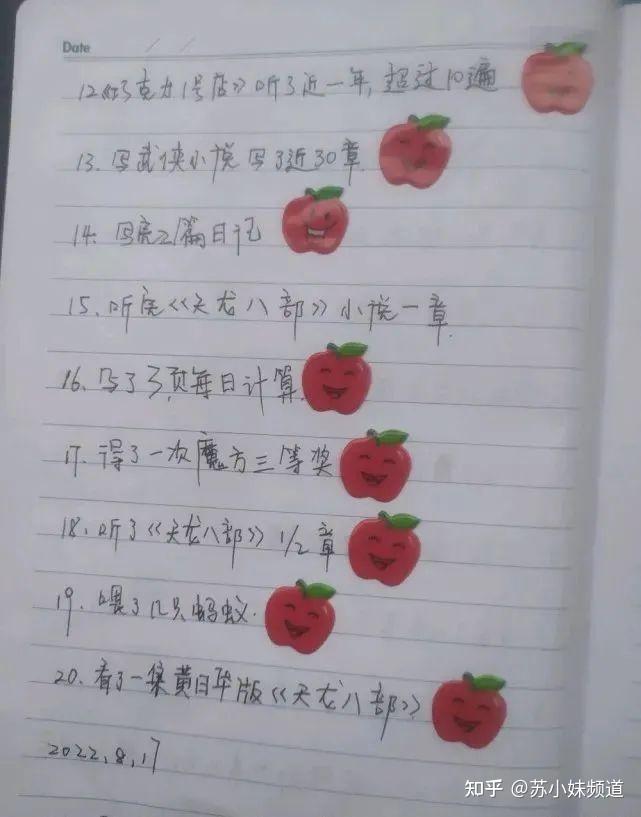 Date / /
12.《巧克力1号店》听了近一年,超过10遍
13.写武侠小说写了近30章.
14.写完2篇日记
15.听完《天龙八部》小说一章.
16.写了3页每日计算.
17.得了一次魔方三等奖
18.听了《天龙八部》1/2章
19.喂了几只蚂蚁.
20.看了一集黄日华版《天龙八部》
2022,8,17
知乎 @苏小妹频道